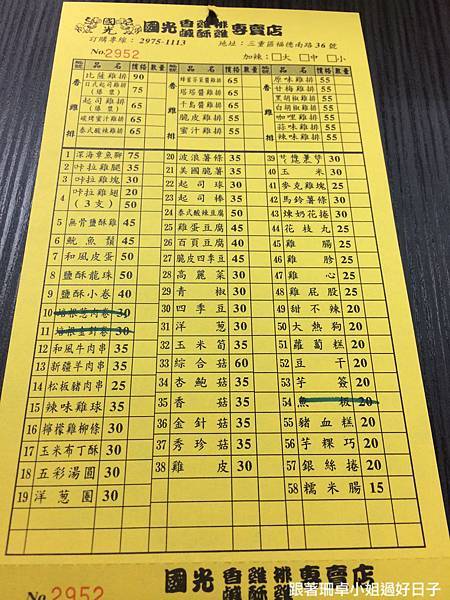 國光 香雞排 鹹酥雞 專賣店
訂購專線： 2975-1113 地址：三重區福德南路36號
No.2952 加辣：□大 □中 □小
品名 價格 數量 品名 價格 數量 品名 價格 數量
香雞排
比薩雞排 90
日式起司雞排(爆漿) 75
起司雞排(爆漿) 65
碳烤蜜汁雞排 65
泰式酸辣雞排 65
蜂蜜芥茉醬雞排 65
塔塔醬雞排 65
千島醬雞排 65
脆皮雞排 55
蜜汁雞排 55
原味雞排 55
甘梅雞排 55
黑胡椒雞排 55
白胡椒雞排 55
咖哩雞排 55
蒜味雞排 55
辣味雞排 55
1 深海章魚腳 75
2 咔拉雞腿 35
3 咔拉雞塊 30
4 咔拉雞翅(3支) 20 50
5 無骨鹽酥雞 45
6 魷魚鬚 45
7 和風皮蛋 50
8 鹽酥龍珠 50
9 鹽酥小卷 40
10 培根蔥肉卷 30
11 培根金針卷 30
12 和風牛肉串 35
13 新疆羊肉串 35
14 松板豬肉串 25
15 辣味雞球 35
16 檸檬雞柳條 30
17 玉米布丁酥 30
18 五彩湯圓 30
19 洋蔥圈 30
20 波浪薯條 35
21 美國脆薯 35
22 起司球 30
23 起司棒 35
24 泰式酸辣豆腐 50
25 雞蛋豆腐 45
26 百頁豆腐 40
27 脆皮四季豆 45
28 高麗菜 30
29 青椒 30
30 四季豆 30
31 洋蔥 30
32 玉米筍 35
33 綜合菇 60
34 杏鮑菇 35
35 香菇 35
36 金針菇 35
37 秀珍菇 35
38 雞皮 30
39 30
40 玉米 30
41 麥克雞塊 25
42 馬鈴薯條 30
43 煉奶花捲 30
44 花枝丸 25
45 雞腸 25
46 雞胗 25
47 雞心 25
48 雞屁股 25
49 甜不辣 20
50 大熱狗 20
51 蘿蔔糕 20
52 豆干 20
53 芋簽 20
54 魚板 20
55 豬血糕 20
56 芋粿巧 20
57 銀絲捲 20
58 糯米腸 15
No.2952 國光 香雞排 鹹酥雞 專賣店
跟著珊卓小姐過好日子